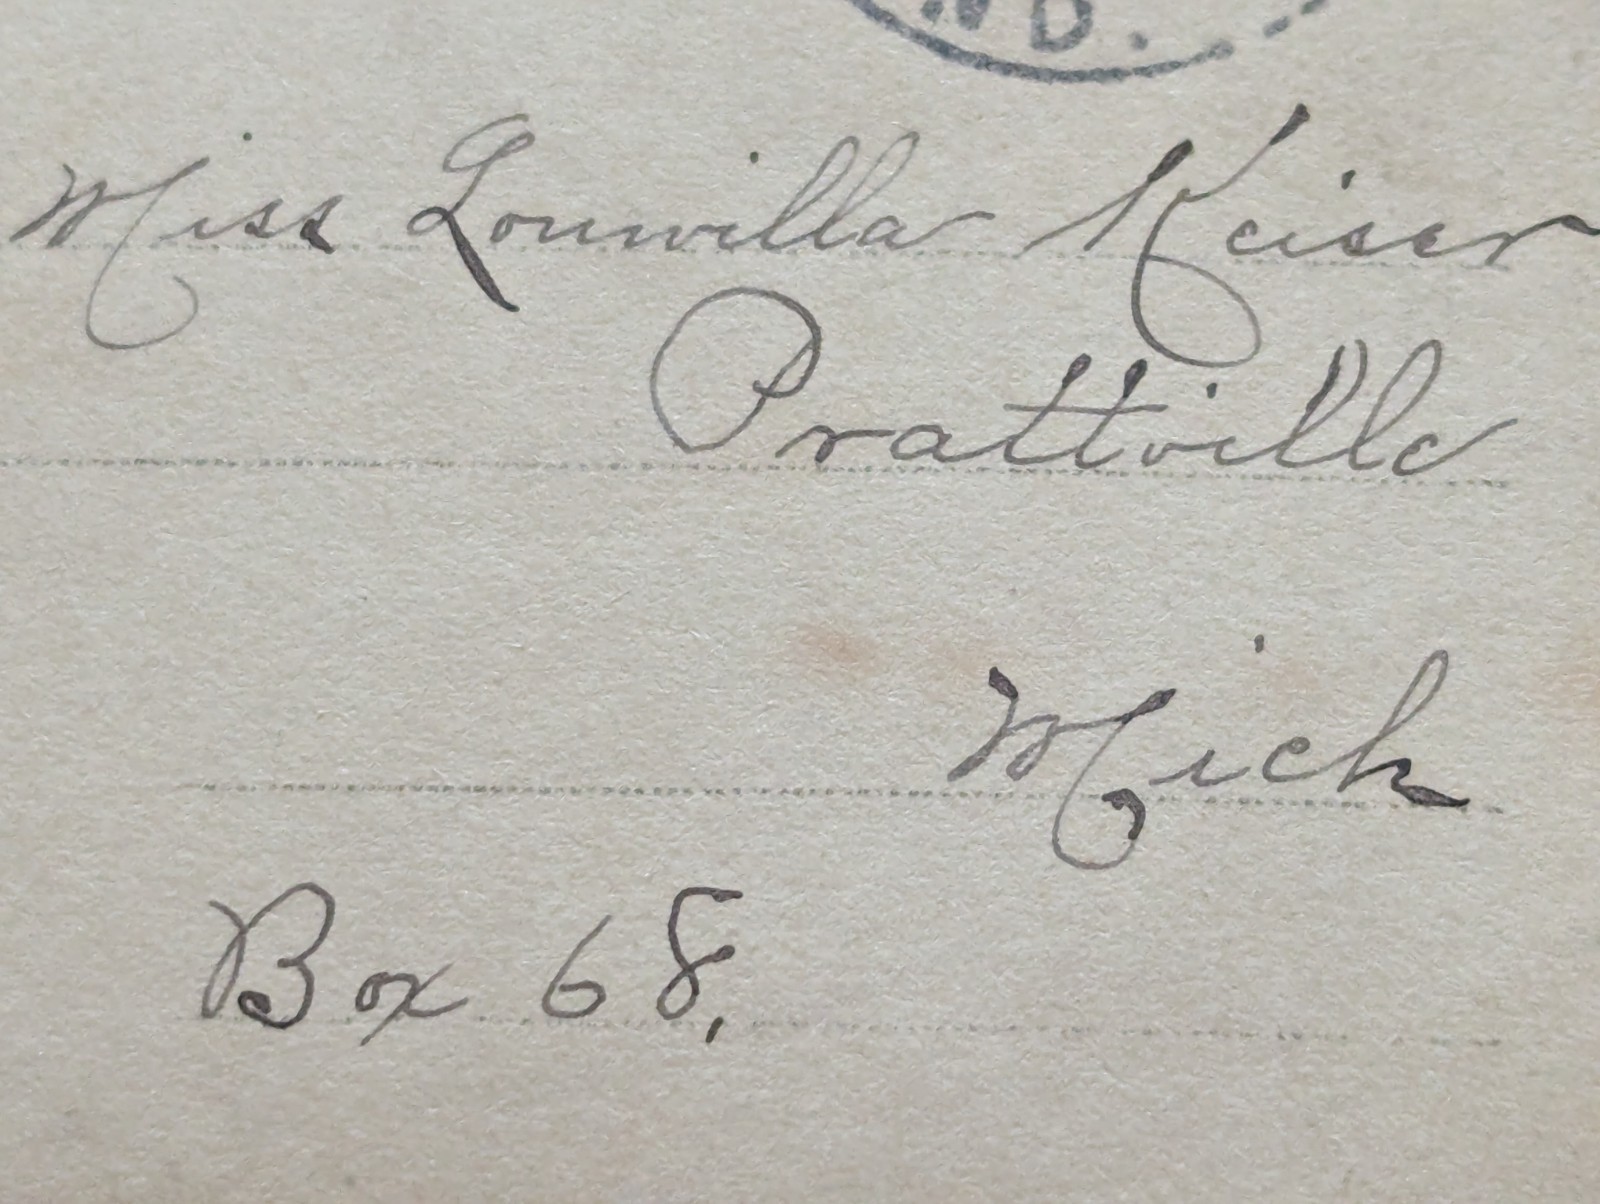 ND.
Miss Louvilla Keiser
Prattville
Mich
Box 68.